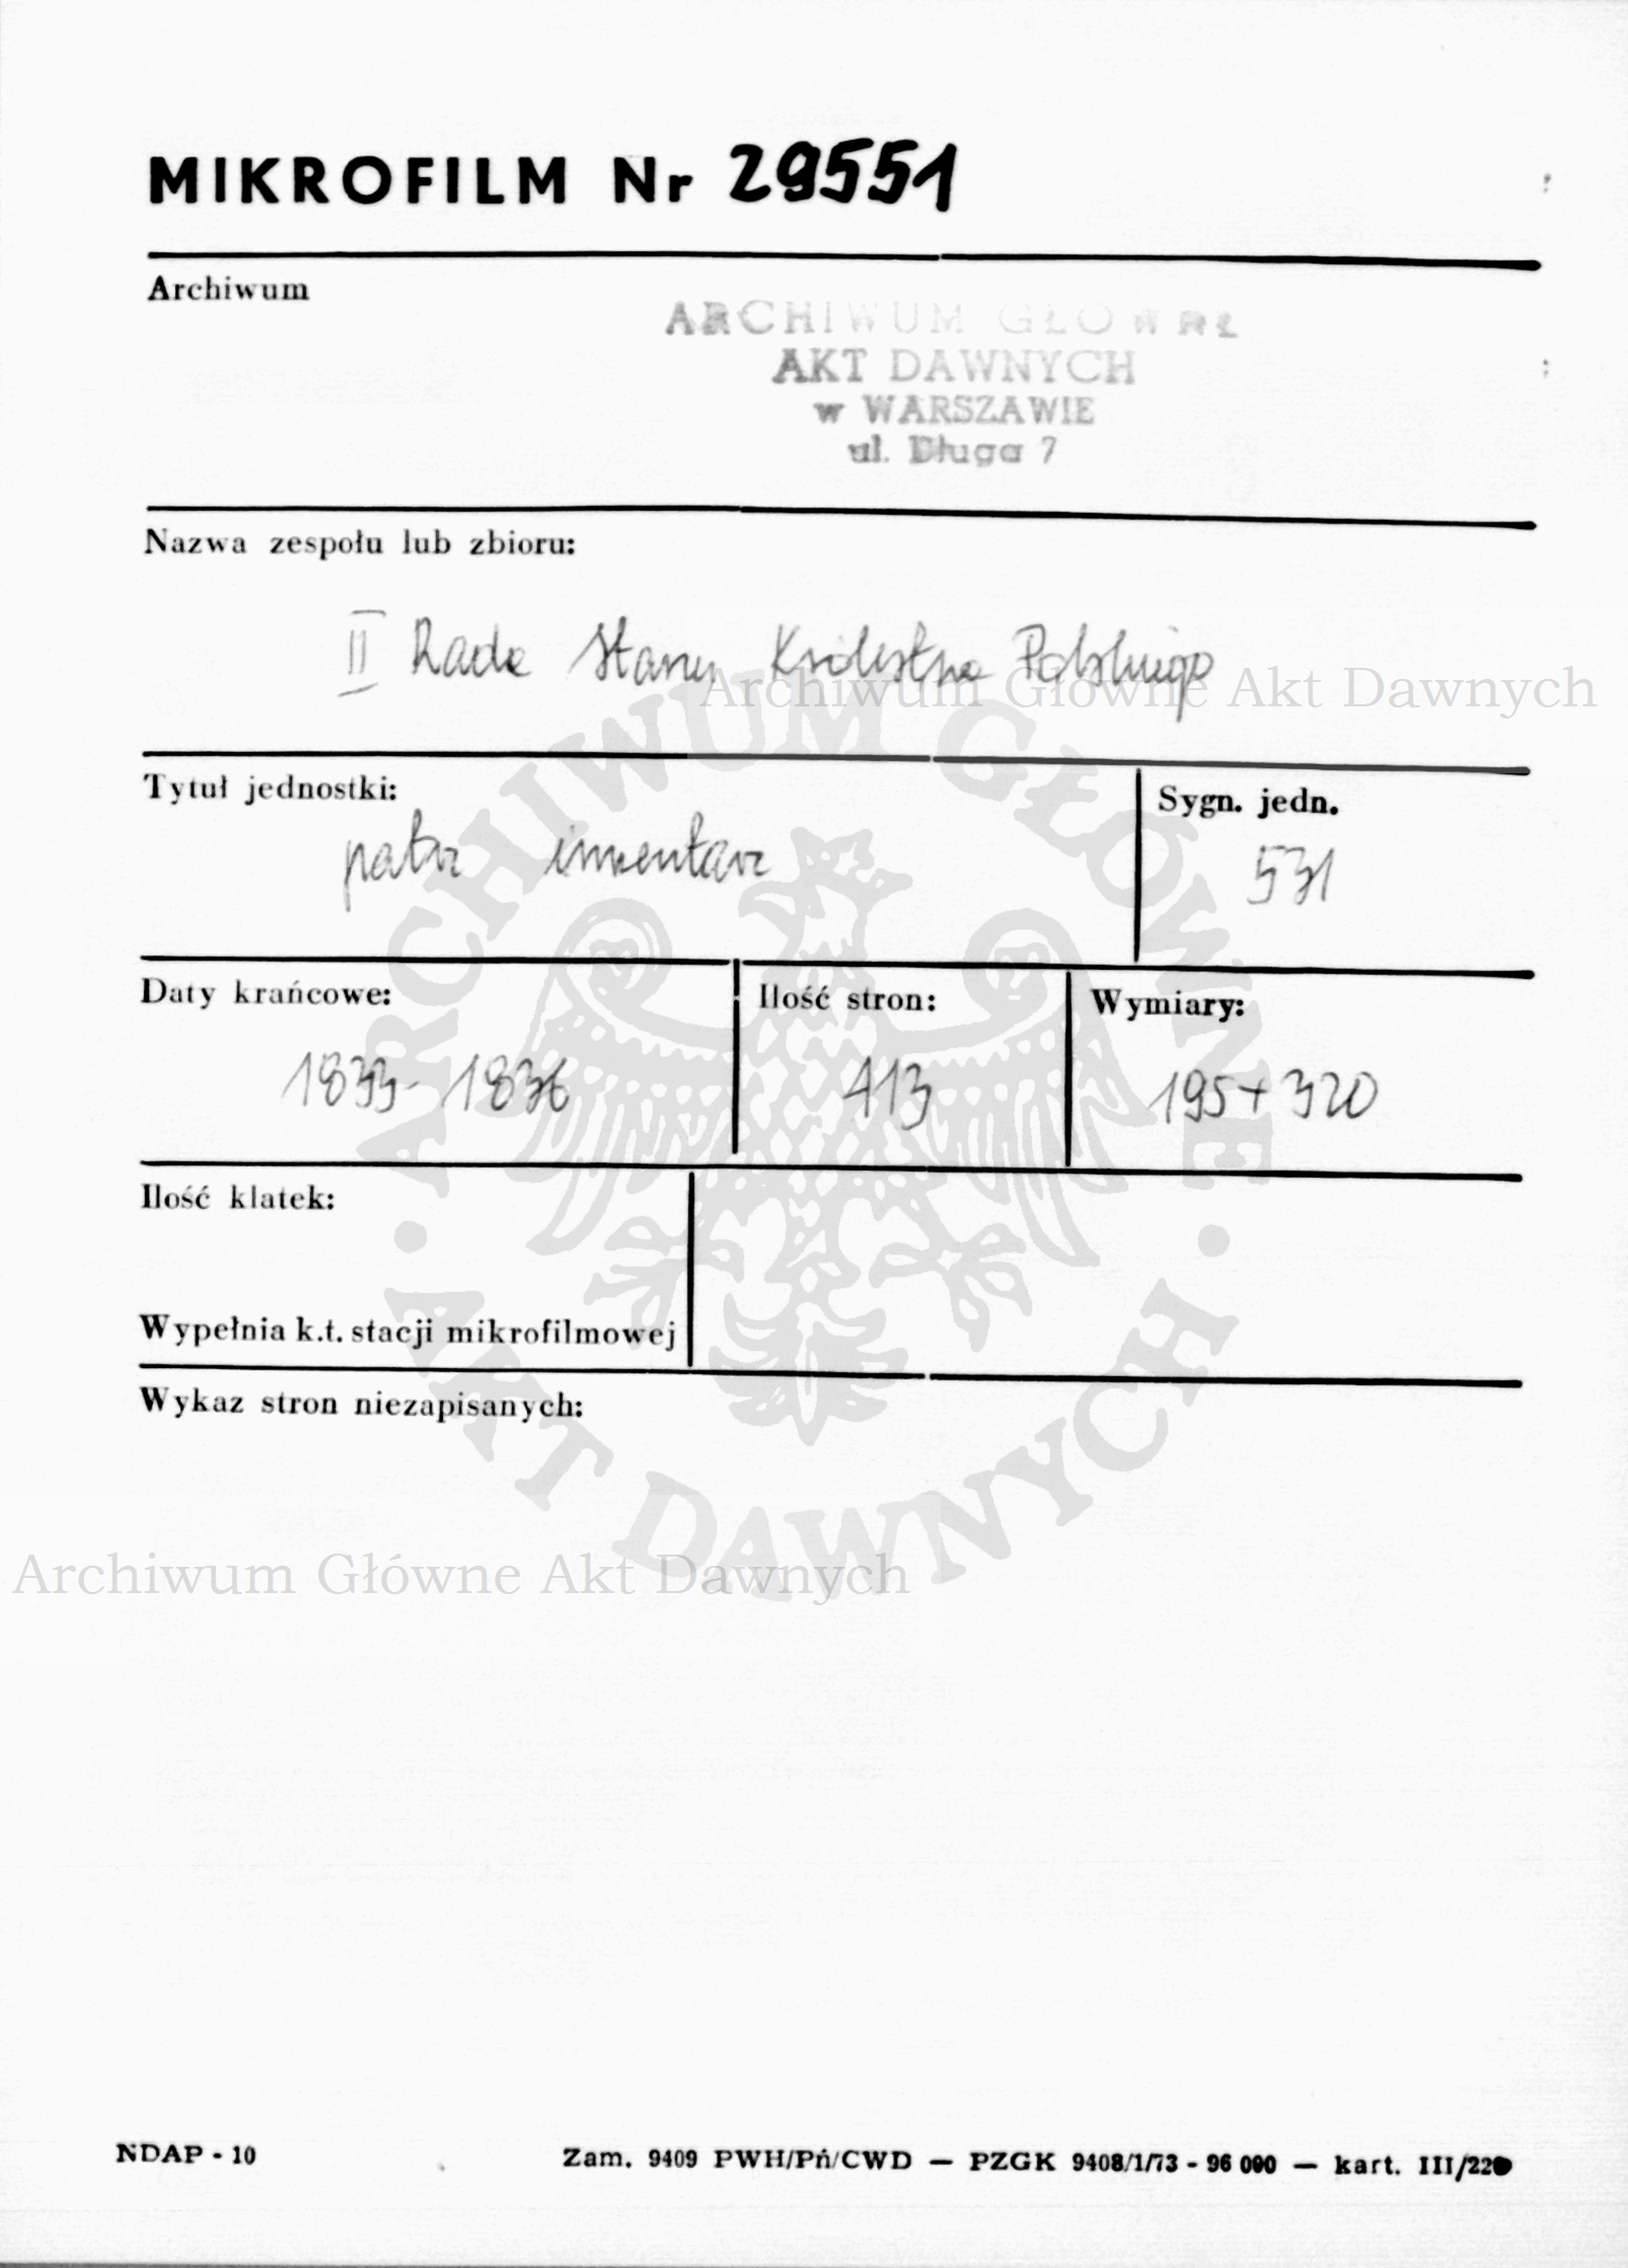 MIKROFILM Nr 29551
Archiwum
ARCHIWUM GŁÓWNE
AKT DAWNYCH
w WARSZAWIE
ul. Długa 7
Nazwa zespołu lub zbioru:
II Rada Stanu Królestwa Polskiego
Archiwum Główne Akt Dawnych
Tytuł jednostki:
patrz inwentarz
Sygn. jedn.
531
Daty krańcowe:
1833-1836
Ilość stron:
413
Wymiary:
195+320
Ilość klatek:
Wypełnia k.t. stacji mikrofilmowej
Wykaz stron niezapisanych:
ARCHIWUM GŁÓWNE
AKT DAWNYCH
Archiwum Główne Akt Dawnych
NDAP - 10
Zam. 9409 PWH/Pń/CWD — PZGK 9408/1/73 - 96 000 — kart. III/220